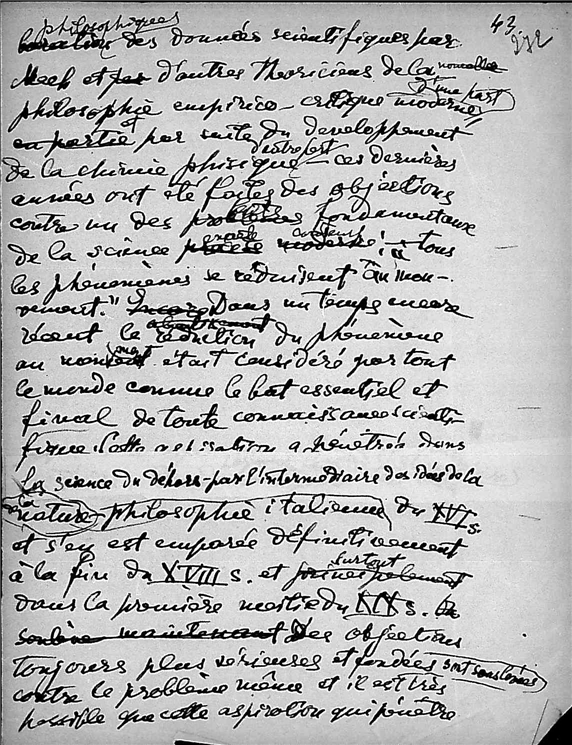 43
philosophiques
des données scientifiques par
Mach et par d'autres theoriciens de la nouvelle
d'une part
philosophie empirico-critique moderne
et
en partie par suite du developpement
d'autre part
de la chimie phisique — ces dernières
années ont été faites des objections
contre un des problèmes fondamentaux
de la science moderne: "tous
les phénomènes se réduisent au mou-
vement." Encore Dans un temps encore
récent la réduction du phénomène
au mouvement était considéré par tout
le monde comme le but essentiel et
final de toute connaissance scienti-
fique. Cette a pénétré dans
la science du déhors - par l'intermédiaire des idées de la
la
nature-philosophie italienne du XVI s.
et s'en est emparée définitivement
surtout
à la fin du XVIII s. et principalement
dans la première moitie du XIX s.
maintenant Des objections
toujours plus sérieuses et fondées sont soulevées
contre le problème même et il est très
possible que cette aspiration qui pénètre